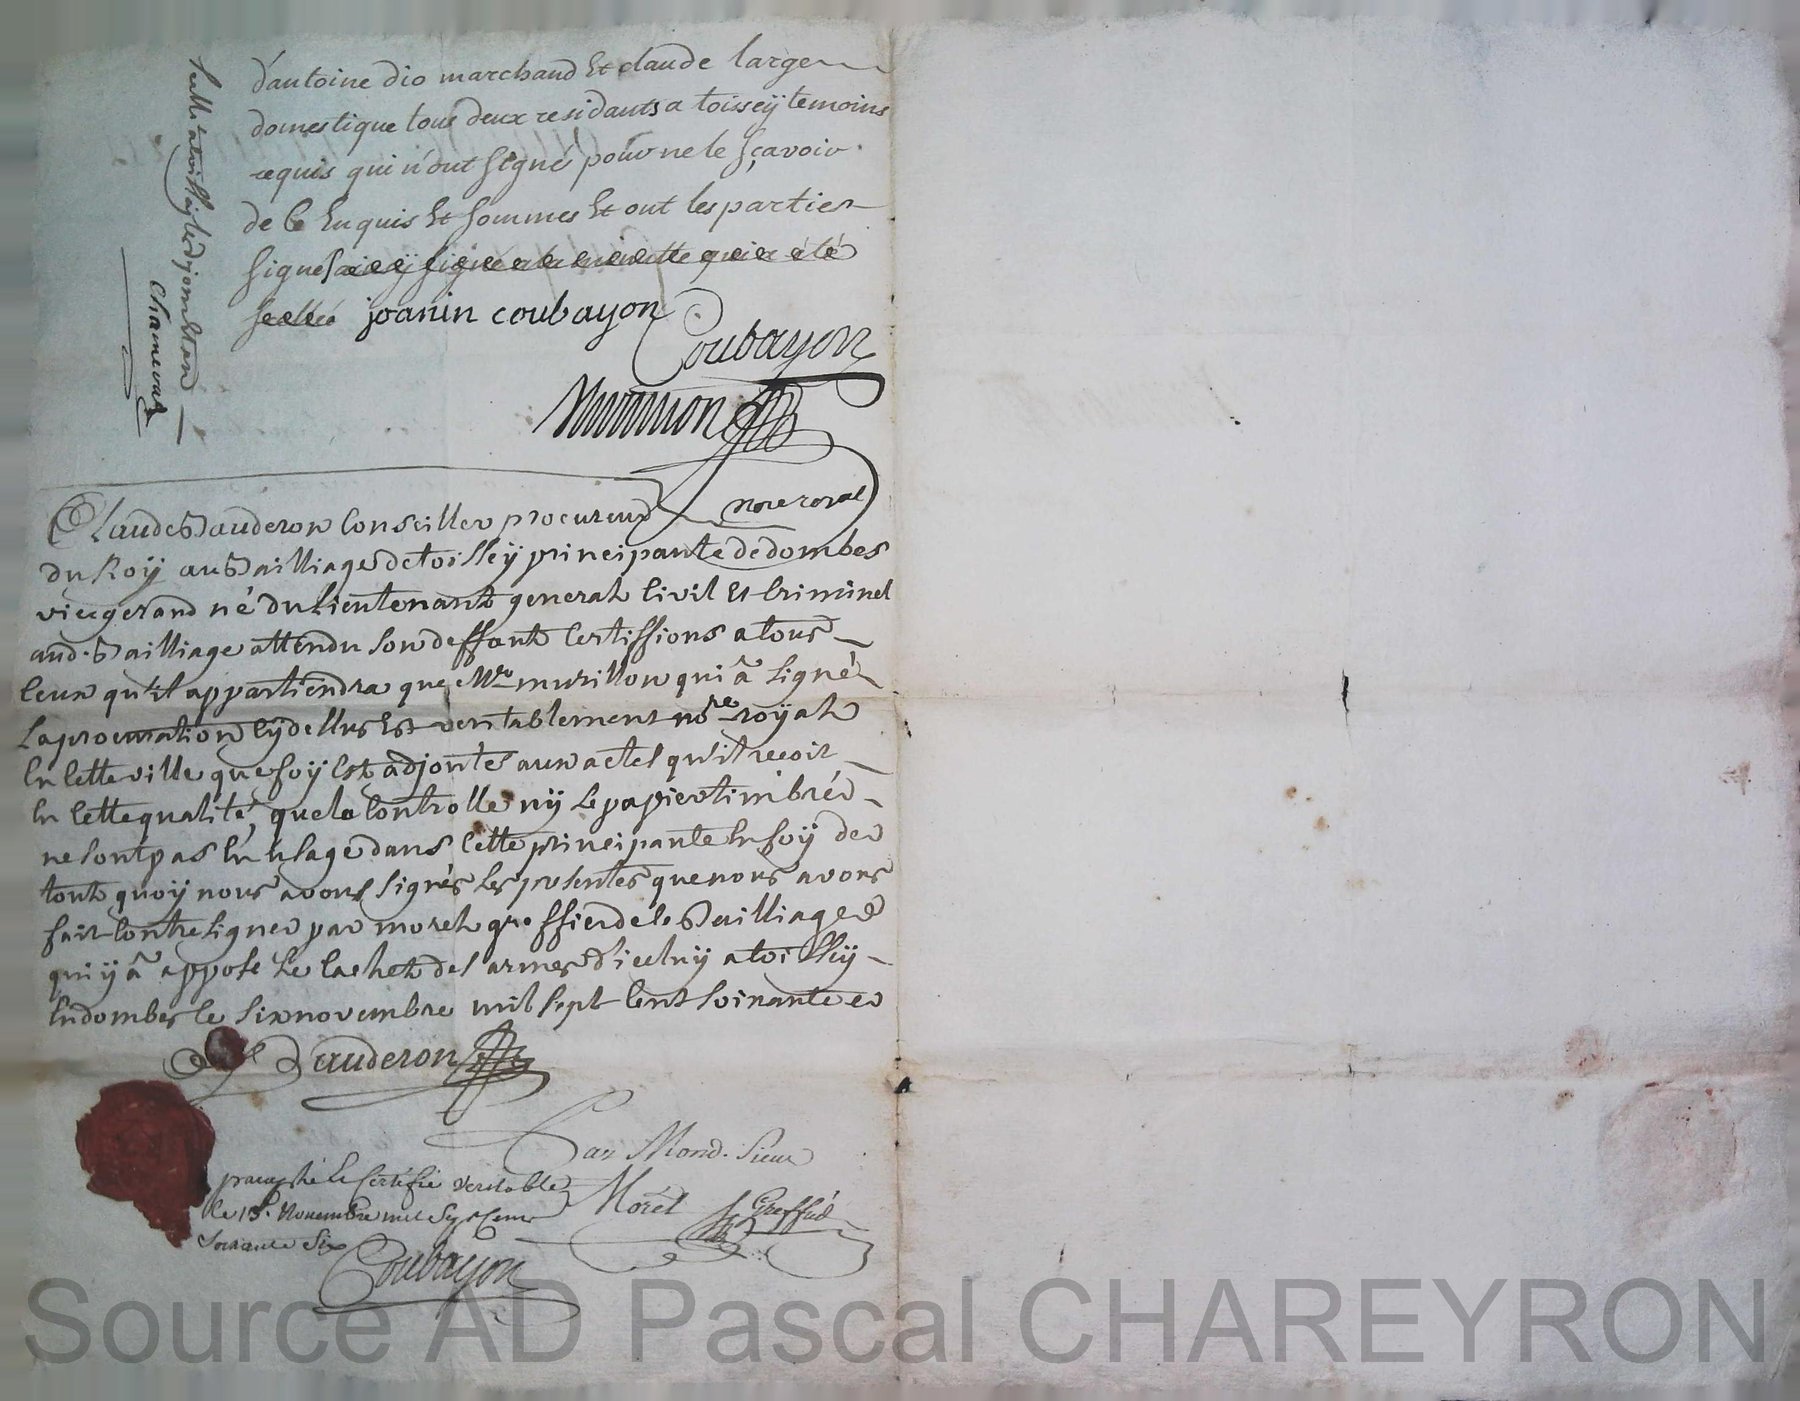 d'antoine dio marchand Et claude large
domestique tous deux residants a toissey temoins
requis qui n'ont signé pour ne le sçavoir
de Ce Enquis Et sommes Et ont les parties
signé
joanin coubayon
Coubayon
Murillon
nore royal
Scellé a toissey led jour et an
Chamevat
Claude Bauderon Conseiller procureur
du Roÿ au Bailliage de toisseÿ principauté de dombes
vicegerand né du Lieutenant general Civil Et Criminel
aud. Bailliage attendu son deffaut Certiffions a tous
Ceux qu'il appartiendra que Mre murillon qui â signé
La procuration Cÿ dessus Est veritablement nore roÿal
En Cette ville que foÿ Est adjoutée aux actes qu'il recoit
En Cette qualité, que le Controlle nÿ Le papier timbré
ne sont pas En usage dans Cette principauté En foÿ de
tout quoÿ nous avons signés Les presentes que nous avons
fait Contresigner par morel greffier de ce Bailliage
qui ÿ â apposé Le Cachet des armes d'iceluÿ a toisseÿ
En dombes le six novembre mil sept Cent soixante et
Bauderon
Par Mond. Sieur
Morel Greffier
paraphé Et Certifié veritable
Le 13. Novembre mil Sept Cent
Soixante Six
Coubayon
Source AD Pascal CHAREYRON